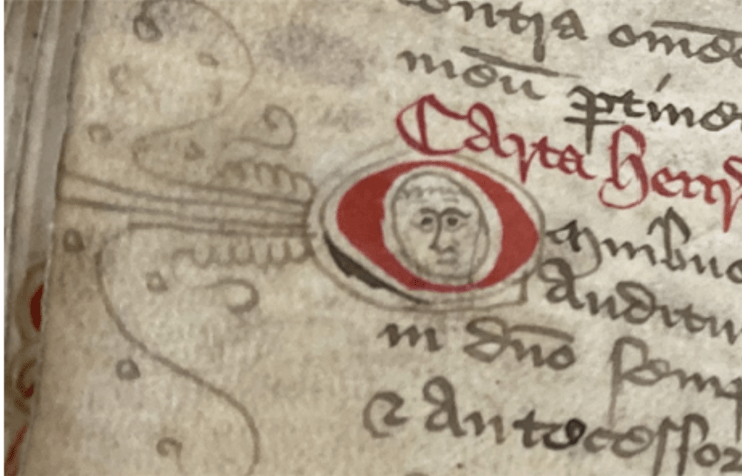 contra om̄e
meū ꝑtine
Carta Henr̄
Omnibus
Auditu
in dn̄o semp
⁊ Antecessor